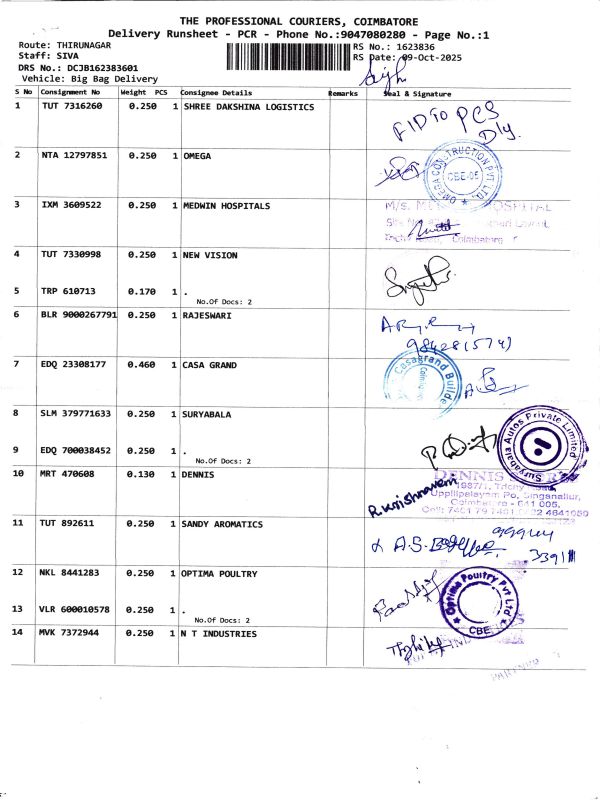 THE PROFESSIONAL COURIERS, COIMBATORE
Delivery Runsheet - PCR - Phone No.:9047080280 - Page No.:1
Route: THIRUNAGAR
RS No.: 1623836
Staff: SIVA
RS Date: 09-Oct-2025
DRS No.: DCJB162383601
Vehicle: Big Bag Delivery
S No Consignment No Weight PCS Consignee Details Remarks Seal & Signature
1 TUT 7316260 0.250 1 SHREE DAKSHINA LOGISTICS
FIDTO PCS
Dly.
2 NTA 12797851 0.250 1 OMEGA
OMEGA CONSTRUCTION PVT LTD. CBE-05
3 IXM 3609522 0.250 1 MEDWIN HOSPITALS
M/s. HOSPITAL
Coimbatore
4 TUT 7330998 0.250 1 NEW VISION
5 TRP 610713 0.170 1 .
No.Of Docs: 2
6 BLR 9000267791 0.250 1 RAJESWARI
98428(574)
7 EDQ 23308177 0.460 1 CASA GRAND
Casagrand Builde
8 SLM 379771633 0.250 1 SURYABALA
Suryabala Autos Private Limited
9 EDQ 700038452 0.250 1 .
No.Of Docs: 2
10 MRT 470608 0.130 1 DENNIS
DENNIS
1987/1, Trichy Road,
Uppilipalayam Po, Singanallur,
Coimbatore - 641 005.
R.Krishnaveni
11 TUT 892611 0.250 1 SANDY AROMATICS
A.S.
12 NKL 8441283 0.250 1 OPTIMA POULTRY
Optima Poultry Pvt Ltd CBE
13 VLR 600010578 0.250 1 .
No.Of Docs: 2
14 MVK 7372944 0.250 1 N T INDUSTRIES
PARTNER